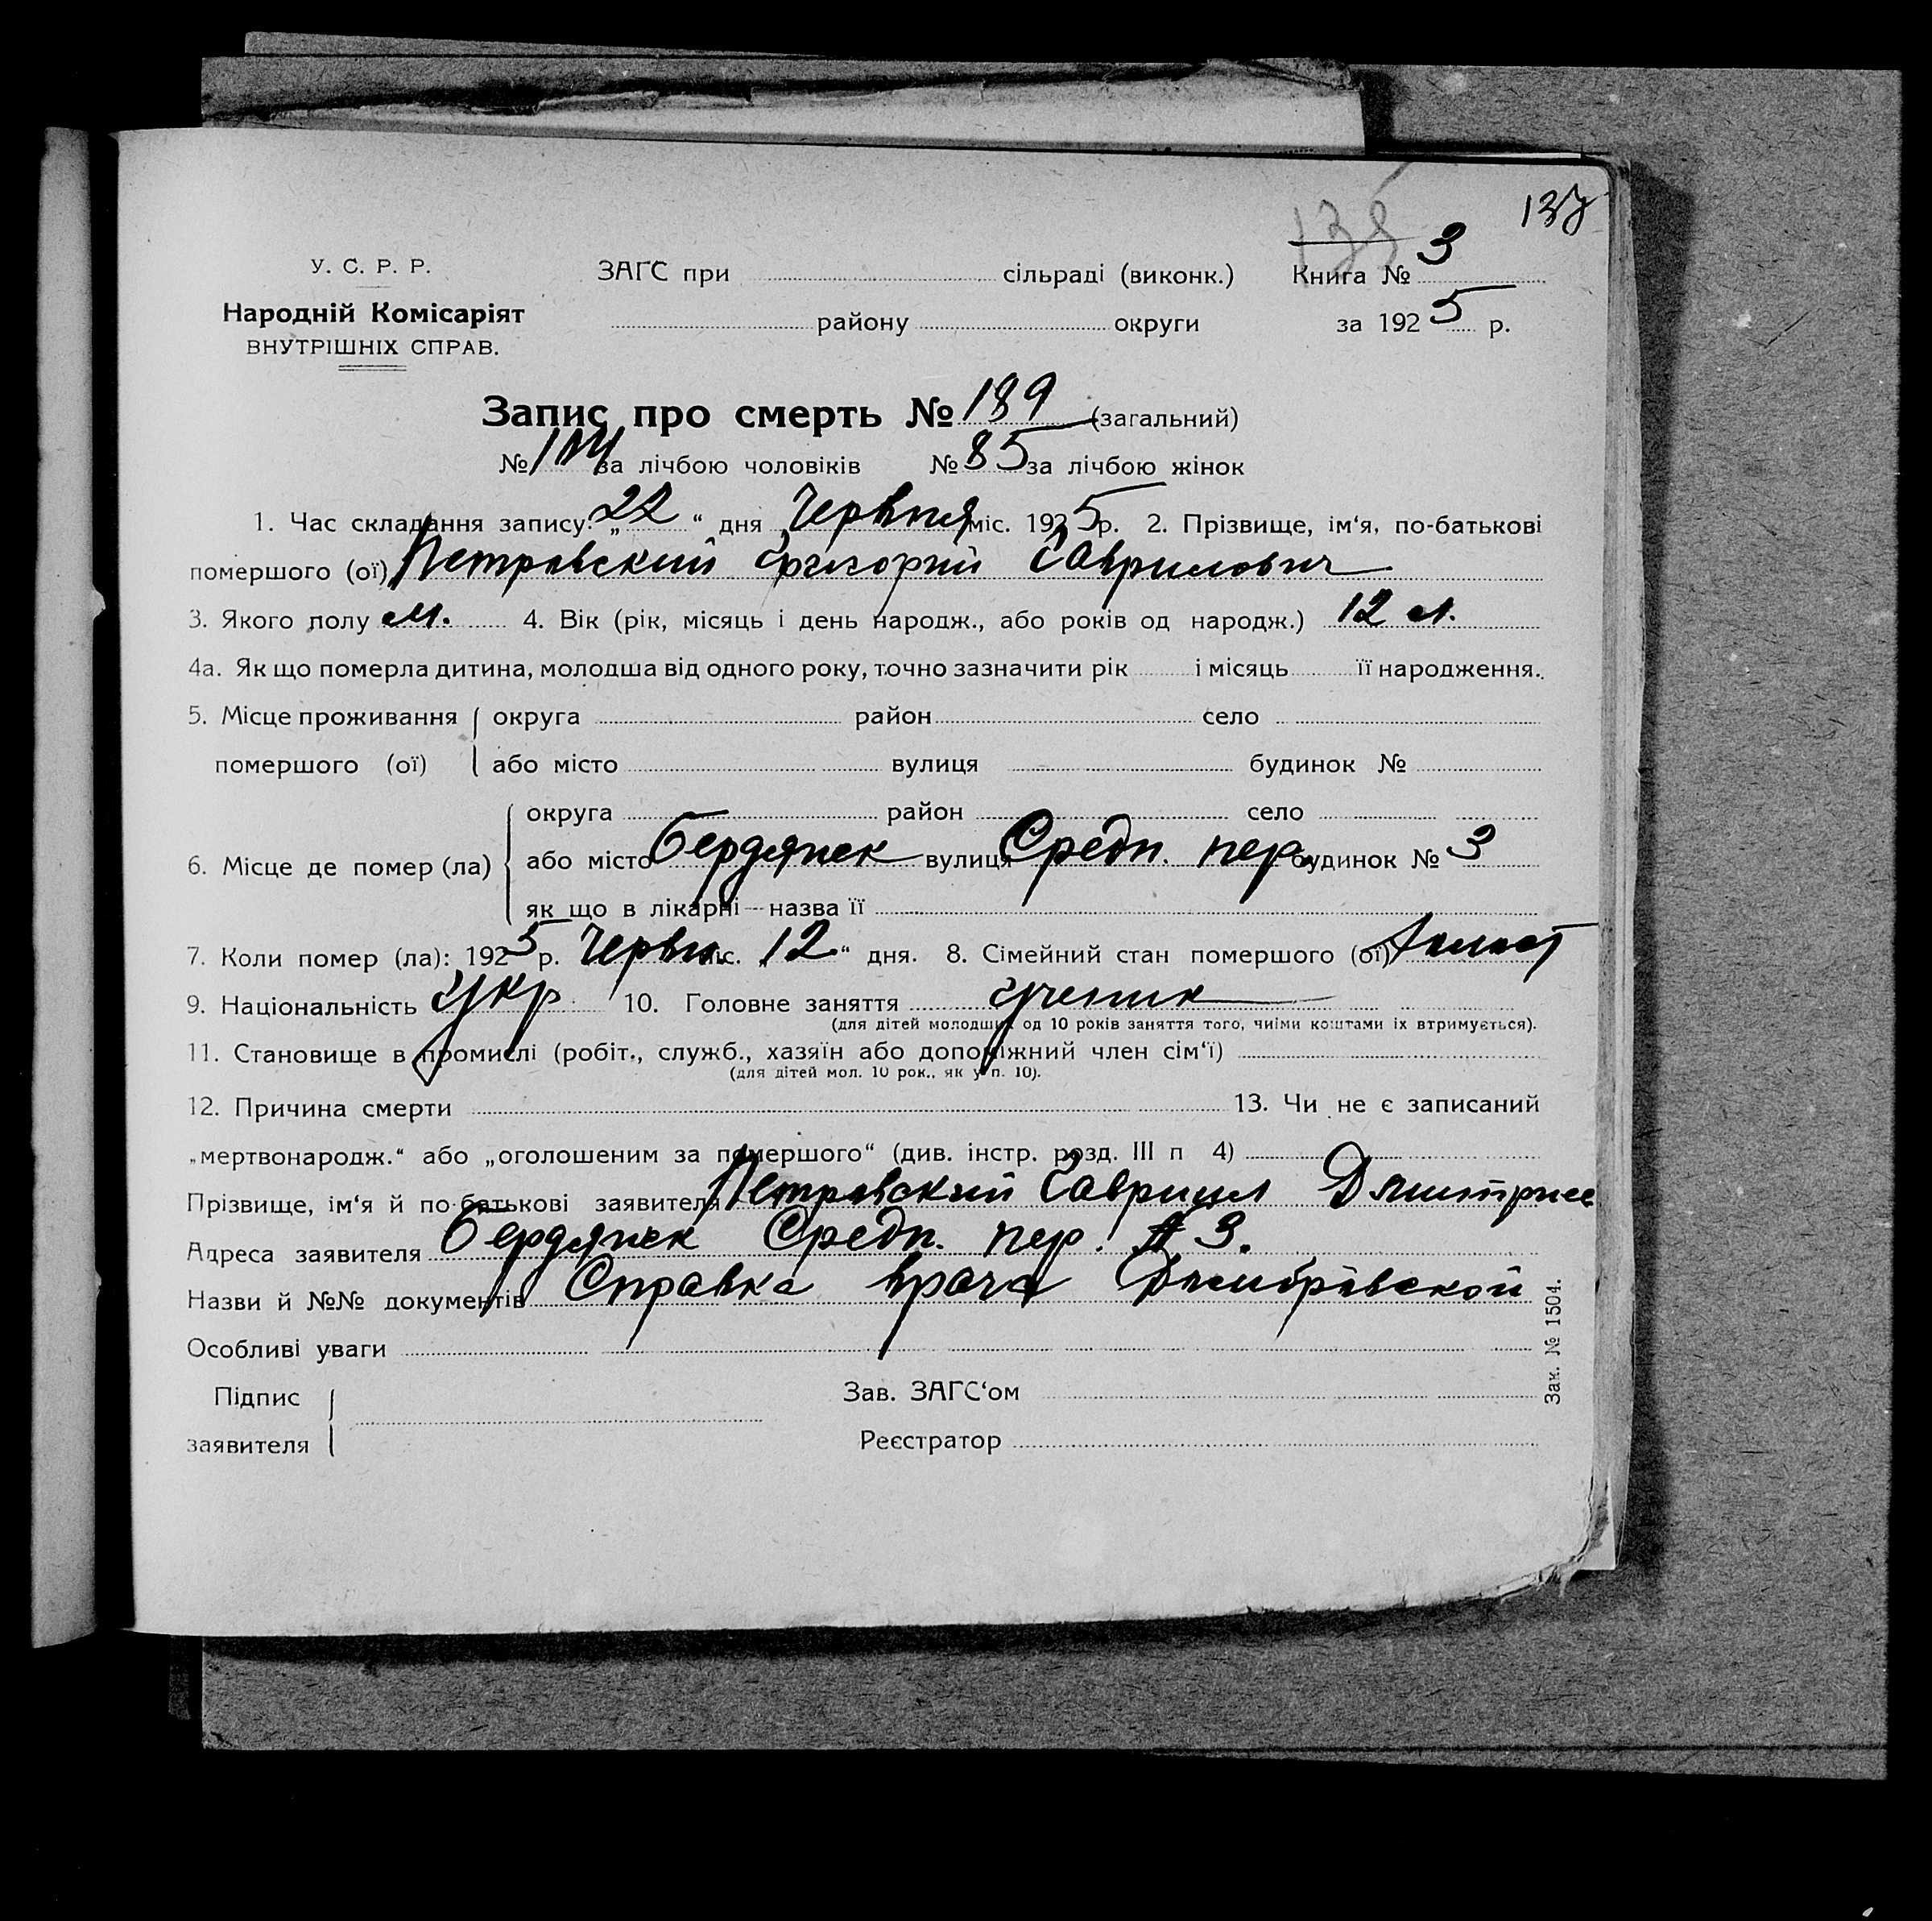 137
135
У. С. Р. Р. ЗАГС при сільраді (виконк.) Книга № 3
Народній Комісаріят району округи за 1925 р.
ВНУТРІШНІХ СПРАВ.
Запис про смерть № 189 (загальний)
№ 104 за лічбою чоловіків № 85 за лічбою жінок
1. Час складання запису: „22“ дня Червня міс. 1925 р. 2. Прізвище, ім‘я, по-батькові
помершого (ої) Петравский Григорий Гаврилович
3. Якого полу м. 4. Вік (рік, місяць і день народж., або років од народж.) 12 л.
4а. Як що померла дитина, молодша від одного року, точно зазначити рік і місяць її народження.
5. Місце проживання округа район село
помершого (ої) або місто вулиця будинок №
округа район село
6. Місце де помер (ла) або місто Бердянск вулиця Средн. пер. будинок № 3
як що в лікарні — назва її
7. Коли помер (ла): 1925 р. Червн. міс. „12“ дня. 8. Сімейний стан помершого (ої) холост
9. Національність Укр. 10. Головне заняття ученик
(для дітей молодших од 10 років заняття того, чиїми коштами їх втримується).
11. Становище в промислі (робіт., служб., хазяїн або допоміжний член сім‘ї)
(для дітей мол. 10 рок., як у п. 10).
12. Причина смерти 13. Чи не є записаний
„мертвонародж.“ або „оголошеним за помершого“ (див. інстр. розд. III п 4)
Прізвище, ім‘я й по-батькові заявителя Петравский Гавриил Дмитрие
Адреса заявителя Бердянск Средн. пер. № 3.
Назви й №№ документів Справка врача Домбравской
Особливі уваги
Підпис Зав. ЗАГС‘ом
заявителя Реєстратор
Зак. № 1504.